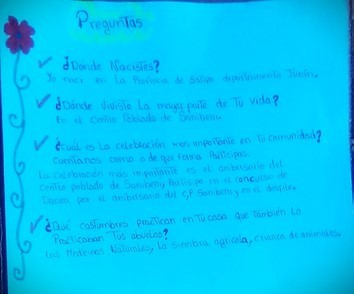 Preguntas
¿Donde Nacistes?
Yo nací en La Provincia de Satipo departamento Junín.
¿Dónde Viviste La mayor parte de Tú vida?
En el Centro Poblado de Sonibeni.
¿Cuál es La celebración mas importante en Tú comunidad?
Cuentanos como o de que forma Participas.
La celebración mas importante es el anibersario del
Centro poblado de Sonibeny Participe en el concurso de
Danza por el anibersario del C,P Sonibeni y en el desfile.
¿Qué costumbres practican en Tú casa que Tambien La
Practicaban Tus abuelos?
Las Medicinas Naturales, La Siembra agricola, crianza de animales.